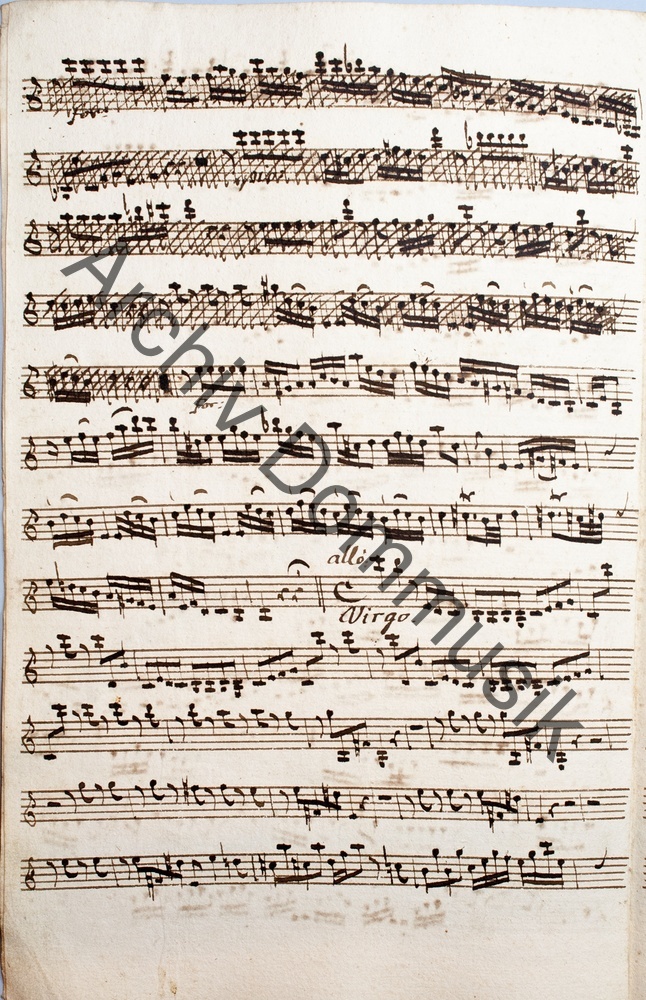 for:
for:
allo
Virgo
Archiv Dommusik